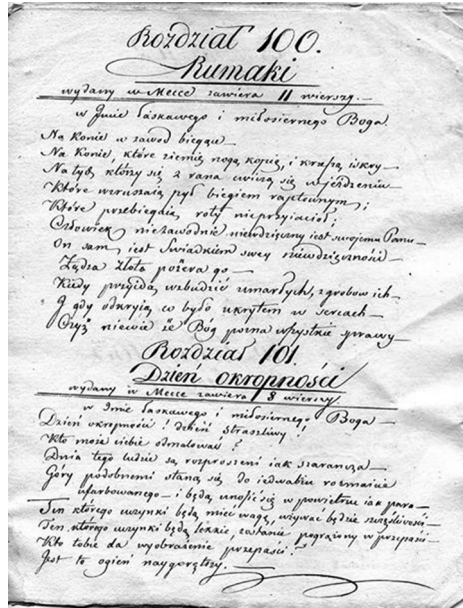 Rozdział 100.
Rumaki
wydany w Mecce zawiera 11 wierszy.
w Imie łaskawego i miłosiernego Boga
Na Konie w zawod biegące
Na Konie, które ziemię nogą kopią, i krzeszą iskry
Na tych, którzy się z rana ćwiczą się w jeżdzeniu
Które wzruszaią pył biegiem raptownym;
Które przebiegaią roty nieprzyiacioł;
Człowiek niezawodnie niewdzięczny iest swojemu Panu
On sam iest świadkiem swey niewdzięczności
Żądza złota pożera go
Kiedy przyidą wzbudzić umarłych, z grobow ich
I gdy odkryią co było ukrytem w sercach
Czyż niewie iż Bog pozna wszystkie sprawy
Rozdział 101.
Dzień okropności
wydany w Mecce zawiera 8 wierszy
w Imie łaskawego i miłosiernego Boga
Dzień okropności! dzień straszliwy!
Kto może ciebie odmalować?
Dnia tego ludzie są rozproszeni iak szarańcza
Góry podobnemi staną się do iedwabiu rozmaicie
ufarbowanego i będą unosić się w powietrzu iak para
Ten którego uczynki będą mieć wagę, używać będzie szczęśliwości
Ten, którego uczynki będą lekkie, zostanie pogrążony w przepaści
Kto tobie da wyobrażenie przepaści?
Jest to ogień naygorętszy.